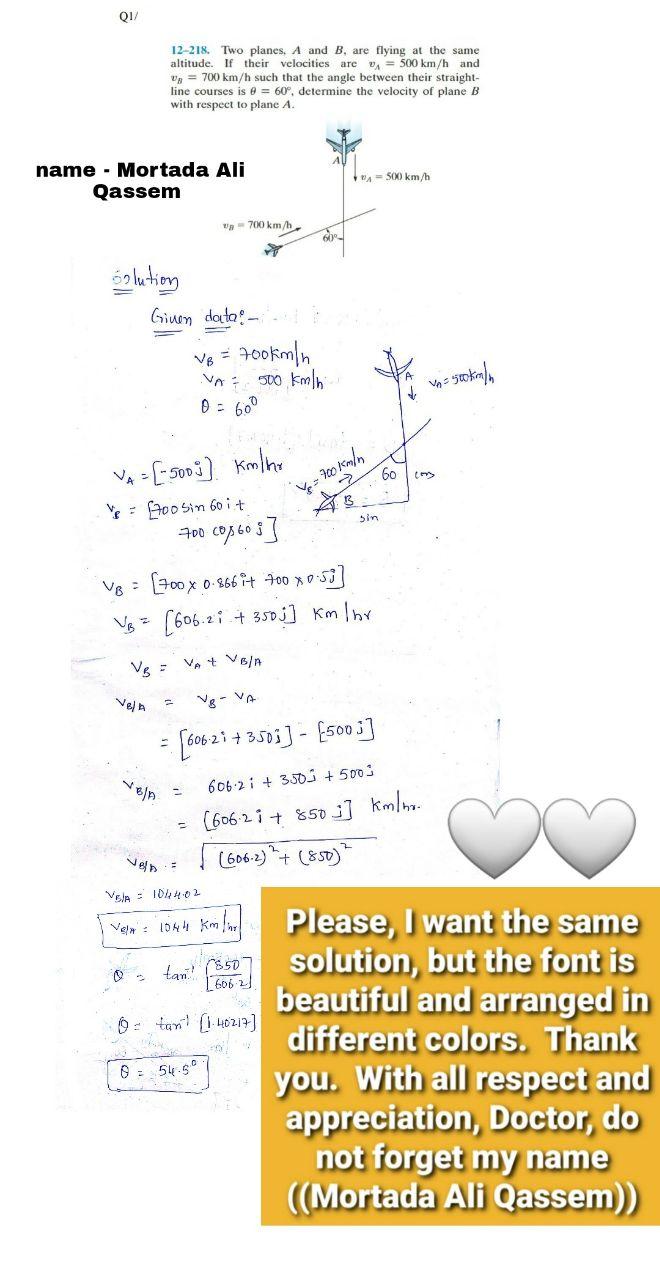 Q1/
12–218. Two planes, A and B, are flying at the same
altitude. If their velocities are vA = 500 km/h and
vB = 700 km/h such that the angle between their straight-
line courses is θ = 60°, determine the velocity of plane B
with respect to plane A.
name - Mortada Ali
Qassem
A
vA = 500 km/h
vB = 700 km/h
60°
Solution
Given data:-
VB = 700 km/h
VA = 500 km/h
θ = 60°
A
VA = 500 km/h
VB = 700 km/h
60
cos
B
sin
VA = [-500j] km/hr
VB = [700 sin 60 i +
700 cos 60 j]
VB = [700 x 0.866 i + 700 x 0.5j]
VB = [606.2i + 350j] km/hr
VB = VA + VB/A
VB/A = VB - VA
= [606.2i + 350j] - [-500j]
VB/A = 606.2i + 350j + 500j
= [606.2i + 850j] km/hr.
VB/A = √(606.2)² + (850)²
VB/A = 1044.02
VB/A = 1044 km/hr
θ = tan⁻¹ [850/606.2]
θ = tan⁻¹ [1.40217]
θ = 54.5°
Please, I want the same
solution, but the font is
beautiful and arranged in
different colors. Thank
you. With all respect and
appreciation, Doctor, do
not forget my name
((Mortada Ali Qassem))